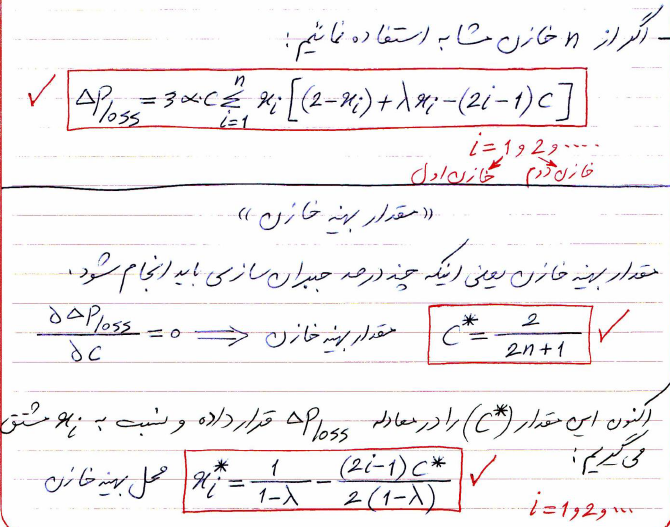 - اگر از n خازن مشابه استفاده نمائیم:
✓ ΔP_loss = 3α·C Σ_{i=1}^{n} x_i [(2-x_i)+λx_i-(2i-1)C]
i=1 و 2 و ....
خازن اول خازن دوم
«مقدار بهینه خازن»
مقدار بهینه خازن یعنی اینکه چند درصد جبران سازی باید انجام شود.
∂ΔP_loss/∂C = 0 ⟹ مقدار بهینه خازن C* = 2/(2n+1) ✓
اکنون این مقدار (C*) را در معادله ΔP_loss قرار داده و نسبت به x_i مشتق
می گیریم:
x_i* = 1/(1-λ) - (2i-1)C*/(2(1-λ)) ✓ محل بهینه خازن
i=1 و 2 و ...